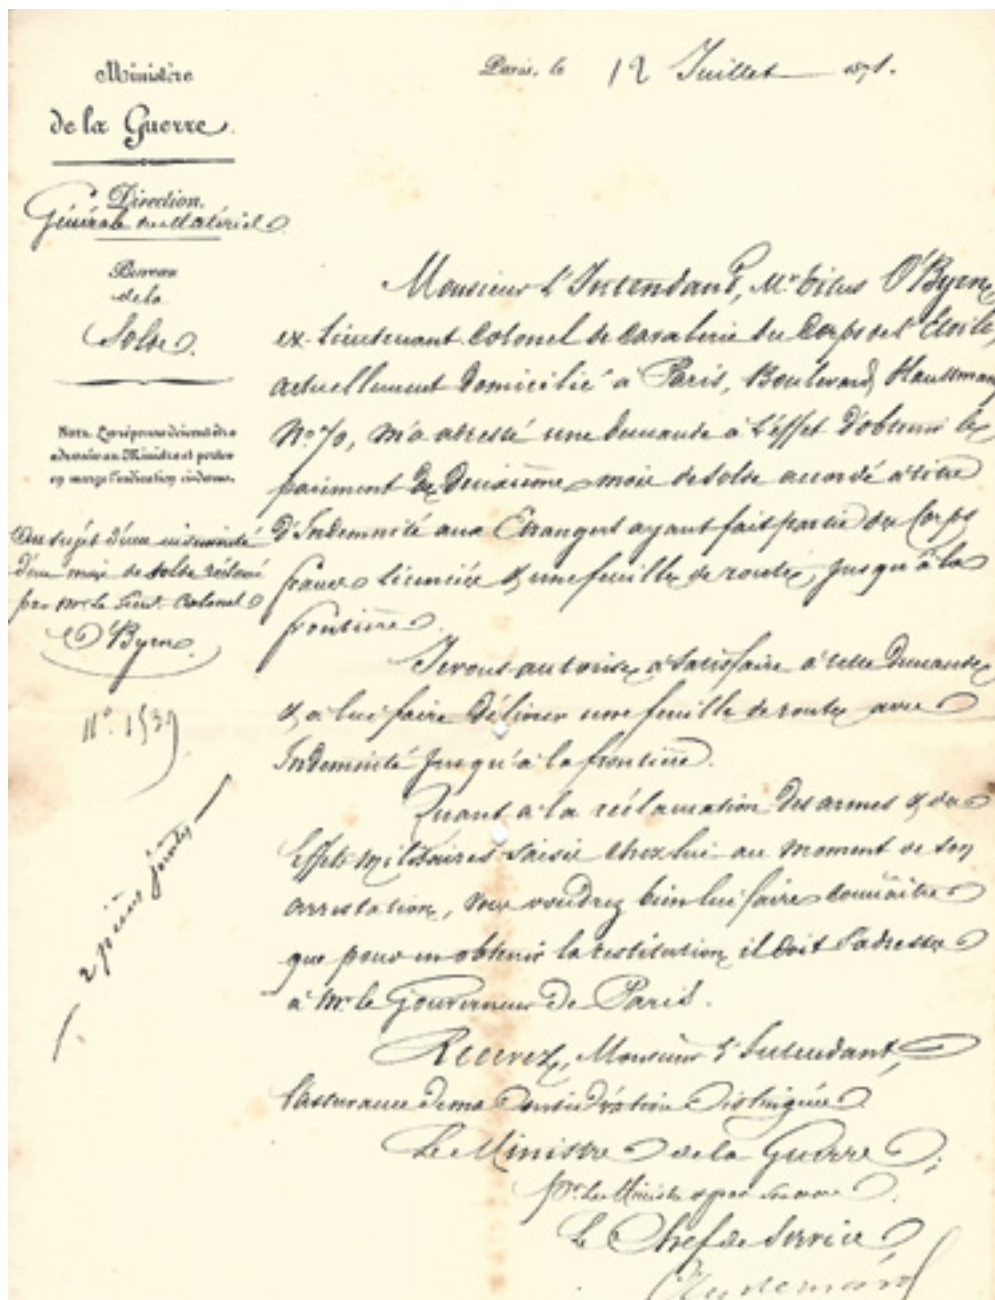 Ministère
de la Guerre.
Direction
Générale du Matériel
Bureau
de la
Solde.
Nota. La réponse devra être
adressée au Ministre et porter
en marge l'indication ci-dessus.
Au sujet d'une indemnité
d'un mois de solde réclamé
par Mr. le Lieut. Colonel
O'Byrn
No. 1539
2 pièces jointes
Paris, le 12 Juillet 1871.
Monsieur l'Intendant, Mr. O'Byrn,
ex-Lieutenant Colonel de Cavalerie du Corps de l'Étoile,
actuellement domicilié à Paris, Boulevard Haussmann
No. 70, m'a adressé une demande à l'effet d'obtenir le
paiement du deuxième mois de solde accordé à titre
d'Indemnité aux Étrangers ayant fait partie du Corps
francs licenciés & une feuille de route, jusqu'à la
frontière.
Je vous autorise à satisfaire à cette demande
& à lui faire délivrer une feuille de route avec
Indemnité jusqu'à la frontière.
Quant à la réclamation des armes & des
Effets militaires saisis chez lui au moment de son
arrestation, vous voudrez bien lui faire connaître
que pour en obtenir la restitution, il doit s'adresser
à Mr. le Gouverneur de Paris.
Recevez, Monsieur l'Intendant,
l'assurance de ma Considération Distinguée
Le Ministre de la Guerre;
Pr. le Ministre & par son ordre.
Le Chef de Service